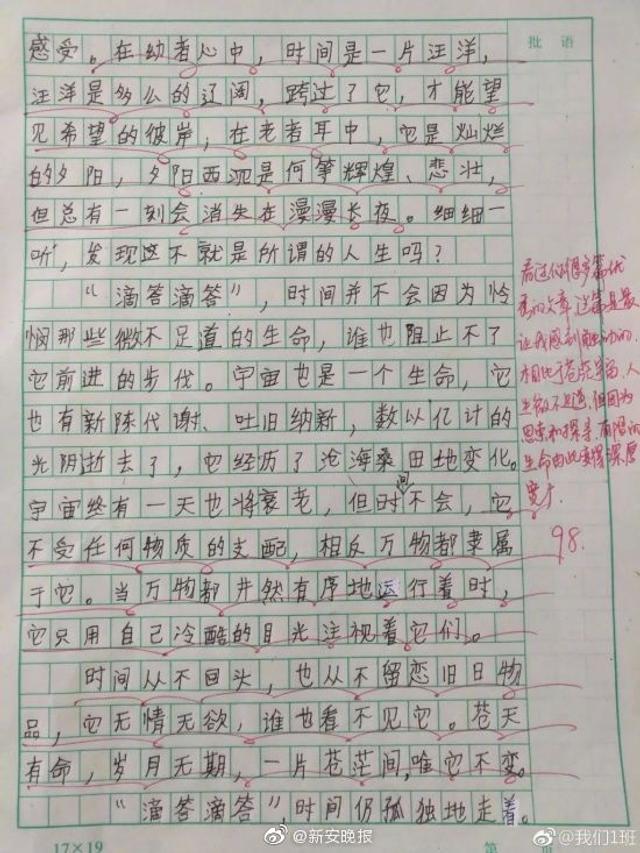 批语
感受。在幼者心中，时间是一片汪洋，
汪洋是多么的辽阔，跨过了它，才能望
见希望的彼岸；在老者耳中，它是灿烂
的夕阳，夕阳西沉是何等辉煌、悲壮，
但总有一刻会消失在漫漫长夜。细细一
听，发现这不就是所谓的人生吗？
“滴答滴答”，时间并不会因为怜
悯那些微不足道的生命，谁也阻止不了
它前进的步伐。宇宙也是一个生命，它
也有新陈代谢、吐旧纳新，数以亿计的
光阴逝去了，它经历了沧海桑田地变化。
宇宙终有一天也将衰老，但时间不会，它
不受任何物质的支配，相反万物都隶属
于它。当万物都井然有序地运行着时，
它只用自己冷酷的目光注视着它们。
时间从不回头，也从不留恋旧日物
品，它无情无欲，谁也看不见它。苍天
有命，岁月无期，一片苍茫间，唯它不变。
“滴答滴答”，时间仍孤独地走着。
看过你很多篇优
秀的文章，这篇是最
让我感到触动的。
相比于苍茫宇宙，人
生微不足道，但因为
思索和探寻，有限的
生命由此变得深厚
宽广。
98.
17×19
第
@新安晚报
@我们1班